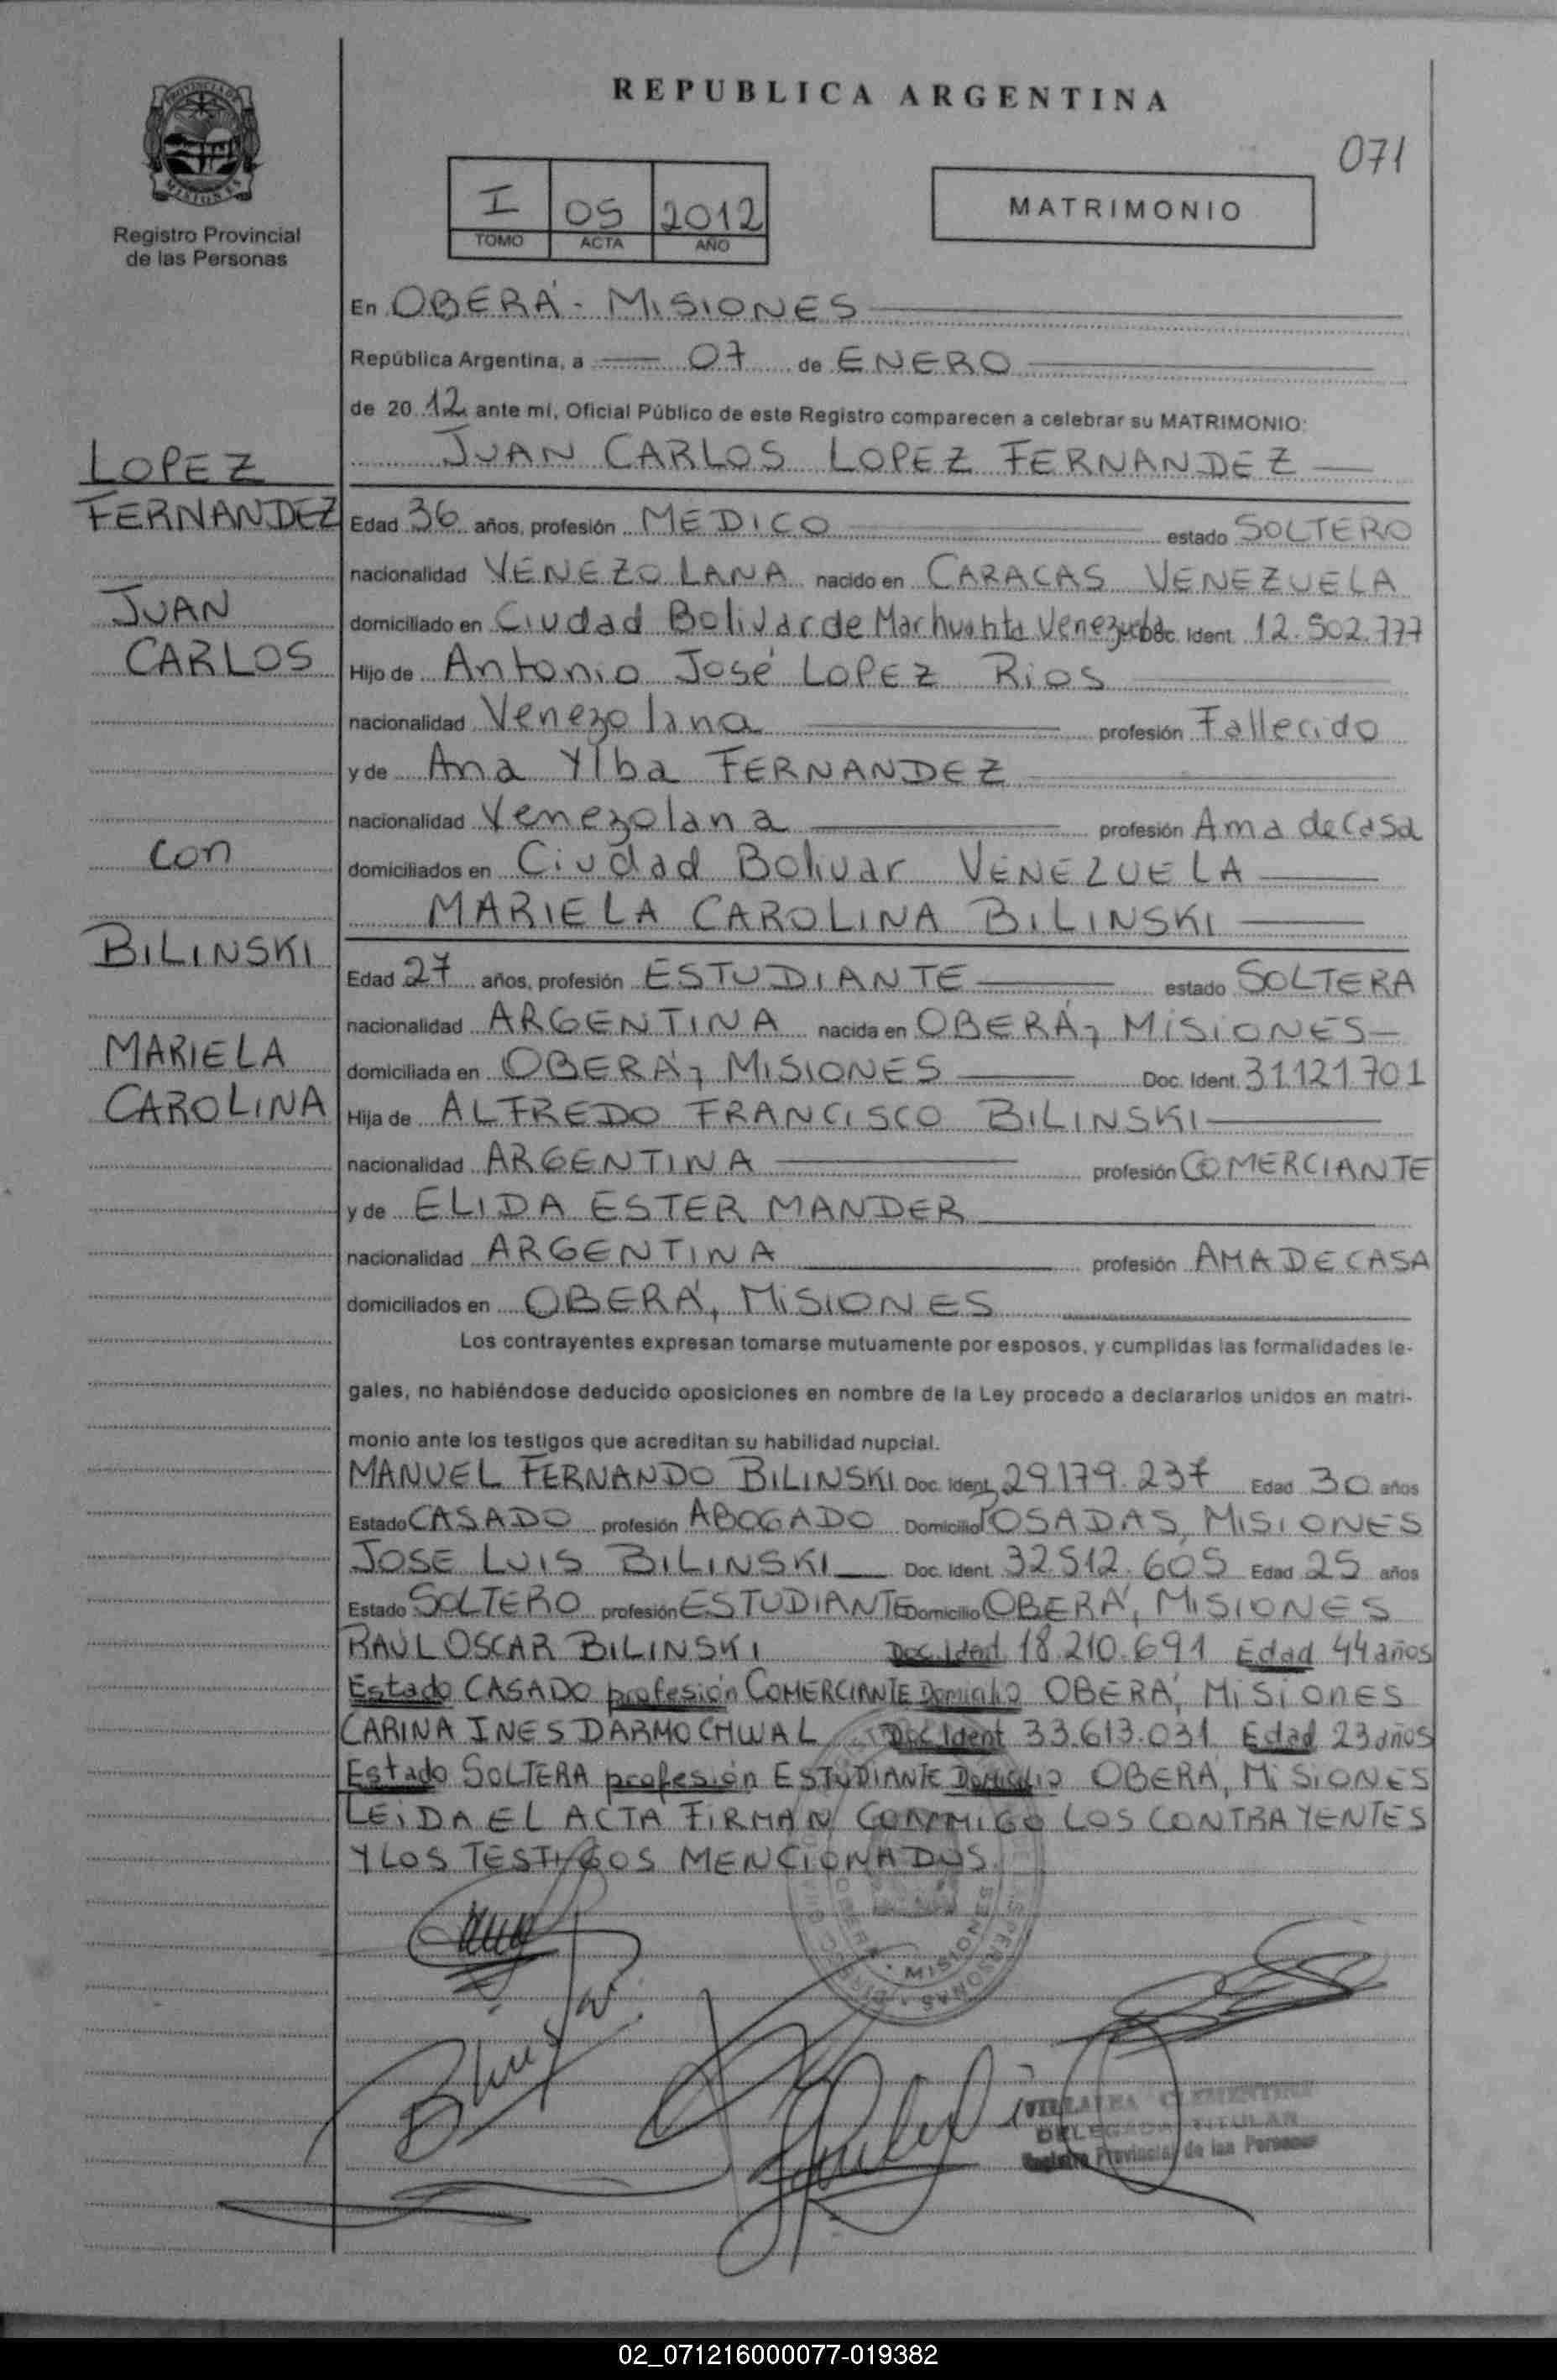 REPUBLICA ARGENTINA
071
PROVINCIA DE
MISIONES
Registro Provincial
de las Personas
I 05 2012
TOMO ACTA AÑO
MATRIMONIO
En OBERÁ - MISIONES
República Argentina, a 07 de ENERO
de 20 12 ante mí, Oficial Público de este Registro comparecen a celebrar su MATRIMONIO:
LOPEZ
FERNANDEZ
JUAN
CARLOS
con
BILINSKI
MARIELA
CAROLINA
JUAN CARLOS LOPEZ FERNANDEZ
Edad 36 años, profesión MEDICO estado SOLTERO
nacionalidad VENEZOLANA nacido en CARACAS VENEZUELA
domiciliado en Ciudad Bolivar de Venezuela Doc. Ident. 12.502.777
Hijo de Antonio José LOPEZ Rios
nacionalidad Venezolana profesión Fallecido
y de Ana Ylba FERNANDEZ
nacionalidad Venezolana profesión Ama de Casa
domiciliados en Ciudad Bolivar VENEZUELA
MARIELA CAROLINA BILINSKI
Edad 27 años, profesión ESTUDIANTE estado SOLTERA
nacionalidad ARGENTINA nacida en OBERÁ, MISIONES
domiciliada en OBERÁ, MISIONES Doc. Ident. 31121701
Hija de ALFREDO FRANCISCO BILINSKI
nacionalidad ARGENTINA profesión COMERCIANTE
y de ELIDA ESTER MANDER
nacionalidad ARGENTINA profesión AMA DE CASA
domiciliados en OBERÁ, MISIONES
Los contrayentes expresan tomarse mutuamente por esposos, y cumplidas las formalidades le-
gales, no habiéndose deducido oposiciones en nombre de la Ley procedo a declararlos unidos en matri-
monio ante los testigos que acreditan su habilidad nupcial.
MANUEL FERNANDO BILINSKI Doc. Ident. 29179.237 Edad 30 años
Estado CASADO profesión ABOGADO Domicilio POSADAS, MISIONES
JOSE LUIS BILINSKI Doc. Ident. 32512.605 Edad 25 años
Estado SOLTERO profesión ESTUDIANTE Domicilio OBERÁ, MISIONES
RAÚL OSCAR BILINSKI Doc. Ident 18.210.691 Edad 44 años
Estado CASADO profesión COMERCIANTE Domicilio OBERÁ, MISIONES
CARINA INES DARMOCHWAL Doc Ident 33.613.031 Edad 23 años
Estado SOLTERA profesión ESTUDIANTE Domicilio OBERÁ, MISIONES
LEIDA EL ACTA FIRMAN CONMIGO LOS CONTRAYENTES
Y LOS TESTIGOS MENCIONADOS.
MISIONES
PERSONAS
VILLALBA CLEMENTINA
DELEGADA TITULAR
Registro Provincial de las Personas
02_071216000077-019382